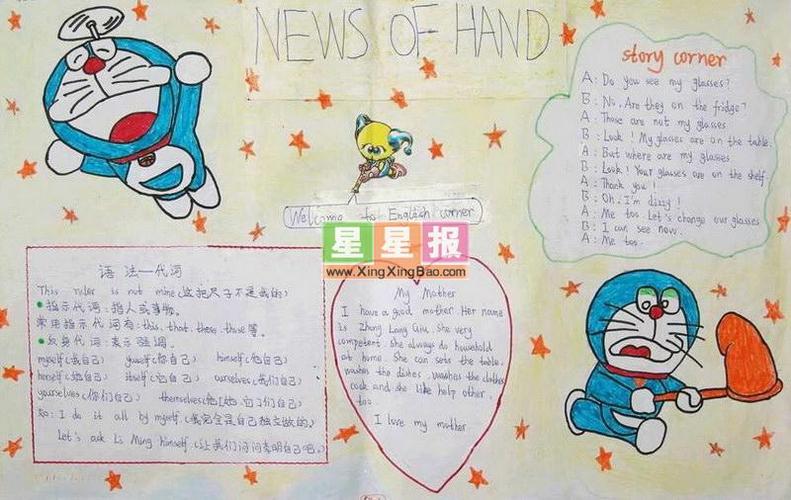 NEWS OF HAND
story corner
A: Do you see my glasses?
B: No. Are they on the fridge?
A: Those are not my glasses
B: Look! My glasses are on the table.
A: But where are my glasses
B: Look! Your glasses are on the shelf.
A: Thank you!
B: Oh, I'm dizzy!
A: Me too. Let's change our glasses
B: I can see now.
A: Me too.
Welcome to English corner
星星报
www.XingXingBao.com
语法一代词
This ruler is not mine (这把尺子不是我的)
指示代词:指人或事物.
常用指示代词有: this, that, these, those等。
反身代词:表示强调.
myself (我自己) yourself (你自己) himself (他自己)
herself (她自己) itself (它自己) ourselves (我们自己)
yourselves (你们自己) themselves (他[她,它]们自己)
如: I do it all by myself. (我完全是自己独立做的)
Let's ask Li Ming himself. (让我们问问李明自己吧。)
My Mother
I have a good mother Her name
is Zhong Lang Qiu. She very
competent. She always do household
at home. She can sets the table.
washes the dishes. washes the clothes
cook and she like help other.
too.
I love my mother